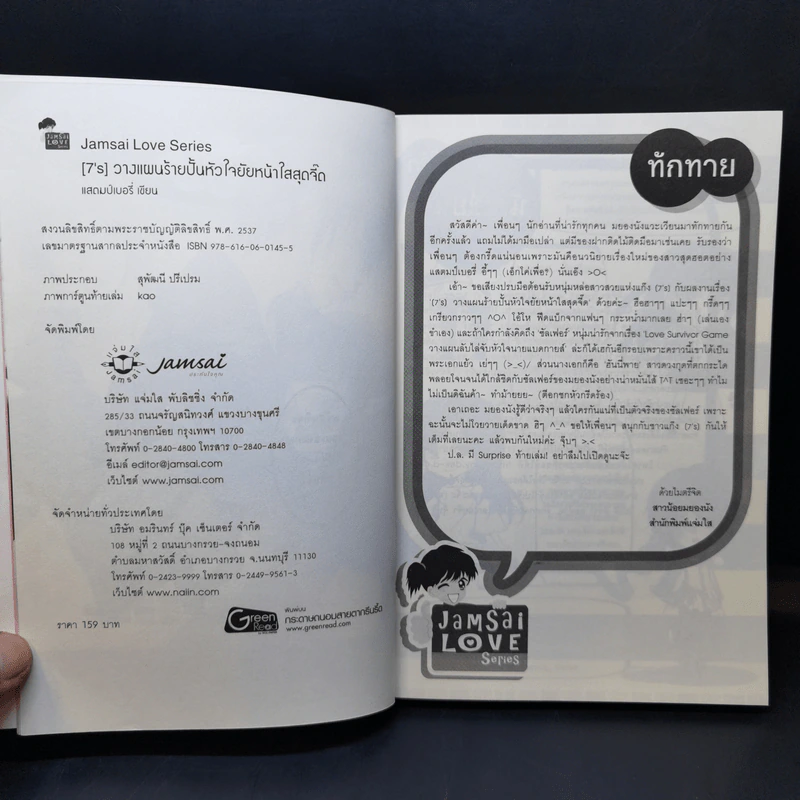 JAMSAI
LOVE
Series
Jamsai Love Series
[7's] วางแผนร้ายปั้นหัวใจยัยหน้าใสสุดจี๊ด
แสตมป์เบอรี่ เขียน
สงวนลิขสิทธิ์ตามพระราชบัญญัติลิขสิทธิ์ พ.ศ. 2537
เลขมาตรฐานสากลประจำหนังสือ ISBN 978-616-06-0145-5
ภาพประกอบ สุพัฒนี ปรีเปรม
ภาพการ์ตูนท้ายเล่ม kao
จัดพิมพ์โดย
แจ่มใส
Jamsai
Jamsai
บริษัท แจ่มใส พับลิชชิ่ง จำกัด
285/33 ถนนจรัญสนิทวงศ์ แขวงบางขุนศรี
เขตบางกอกน้อย กรุงเทพฯ 10700
โทรศัพท์ 0-2840-4800 โทรสาร 0-2840-4848
อีเมล์ editor@jamsai.com
เว็บไซต์ www.jamsai.com
จัดจำหน่ายทั่วประเทศโดย
บริษัท อมรินทร์ บุ๊ค เซ็นเตอร์ จำกัด
108 หมู่ที่ 2 ถนนบางกรวย-จงถนอม
ตำบลมหาสวัสดิ์ อำเภอบางกรวย จ.นนทบุรี 11130
โทรศัพท์ 0-2423-9999 โทรสาร 0-2449-9561-3
เว็บไซต์ www.naiin.com
ราคา 159 บาท
Green
Read
พิมพ์บน
กระดาษถนอมสายตากรีนรี้ด
www.greenread.com
ทักทาย
สวัสดีค่า~ เพื่อนๆ นักอ่านที่น่ารักทุกคน มยองนังแวะเวียนมาทักทายกัน
อีกครั้งแล้ว แถมไม่ได้มามือเปล่า แต่มีของฝากติดไม้ติดมือมาเช่นเคย รับรองว่า
เพื่อนๆ ต้องกรี๊ดแน่นอนเพราะมันคือนวนิยายเรื่องใหม่ของสาวสุดฮอตอย่าง
แสตมป์เบอรี่ อี๊ๆๆ (เอ็กโค่เพื่อ?) นั่นเอง >O<
เอ้า~ ขอเสียงปรบมือต้อนรับหนุ่มหล่อสาวสวยแห่งแก๊ง (7's) กับผลงานเรื่อง
'(7's) วางแผนร้ายปั้นหัวใจยัยหน้าใสสุดจี๊ด' ด้วยค่ะ~ ฮือฮาๆๆ แปะๆๆ กรี๊ดๆๆ
เกรียวกราวๆๆ ^O^ ใช้ไห ฟีดแบ็กจากแฟนๆ กระหน่ำมากเลย ฮ่าๆ (เล่นเอง
ขำเอง) และถ้าใครกำลังคิดถึง 'ซัลเฟอร์' หนุ่มน่ารักจากเรื่อง 'Love Survivor Game
วางแผนลับไล่จับหัวใจนายแบดกายส์' ล่ะก็ได้เฮกันอีกรอบเพราะคราวนี้เขาได้เป็น
พระเอกแล้ว เย่ๆๆ (>_<)/ ส่วนนางเอกก็คือ 'ฮันนี่พาย' สาวดวงกุดที่ตกกระได
พลอยโจนจนได้ใกล้ชิดกับซัลเฟอร์ของมยองนังอย่างน่าหมั่นไส้ T^T เชอะๆๆ ทำไม
ไม่เป็นดิฉันค้า~ ทำม้ายยย~ (ตีอกชกหัวกรีดร้อง)
เอาเถอะ มยองนังรู้ดีว่าจริงๆ แล้วใครกันแน่ที่เป็นตัวจริงของซัลเฟอร์ เพราะ
ฉะนั้นจะไม่โวยวายเด็ดขาด ฮิๆ ^_^ ขอให้เพื่อนๆ สนุกกับชาวแก๊ง (7's) กันให้
เต็มที่เลยนะคะ แล้วพบกันใหม่ค่ะ จุ๊บๆ >.<
ป.ล. มี Surprise ท้ายเล่ม! อย่าลืมไปเปิดดูนะจ๊ะ
ด้วยไมตรีจิต
สาวน้อยมยองนัง
สำนักพิมพ์แจ่มใส
JAMSAI
LOVE
Series